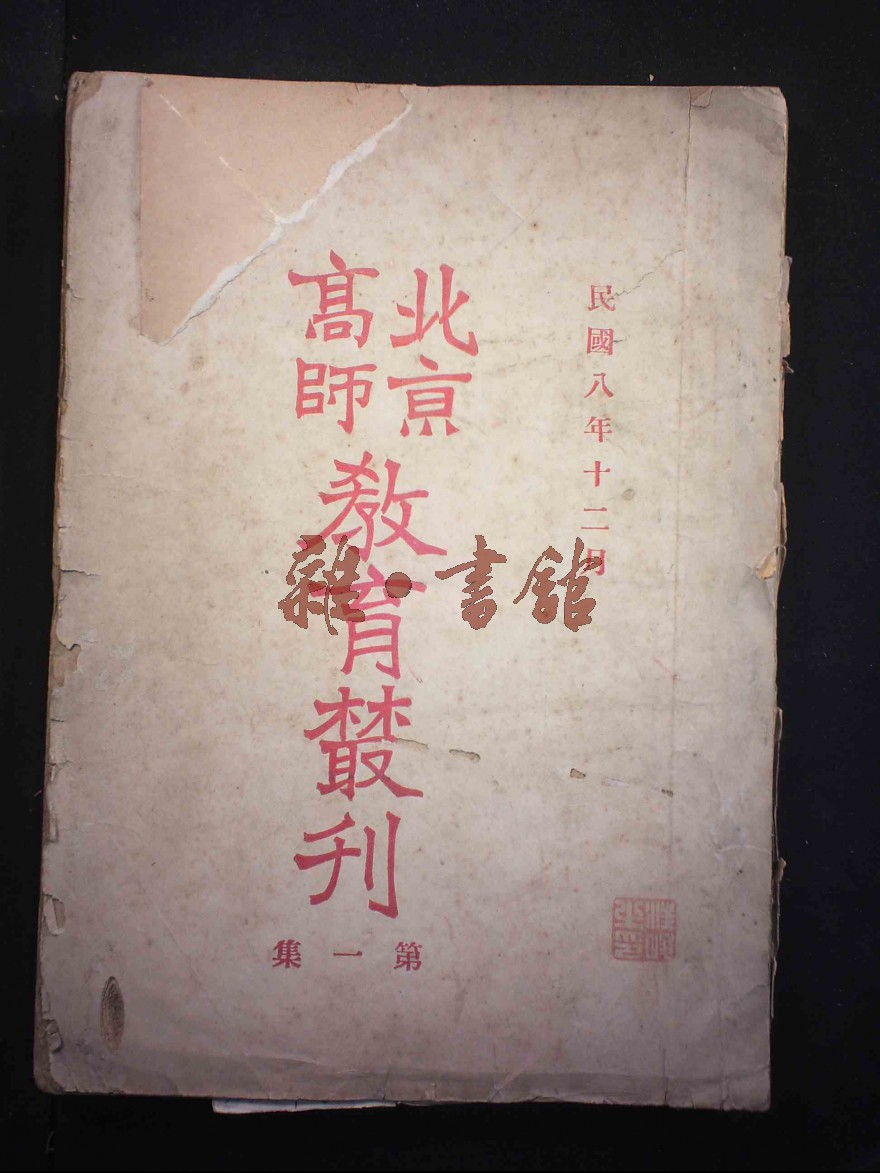 民國八年十二月
北京
高師
教育叢刊
第一集
雜·書館